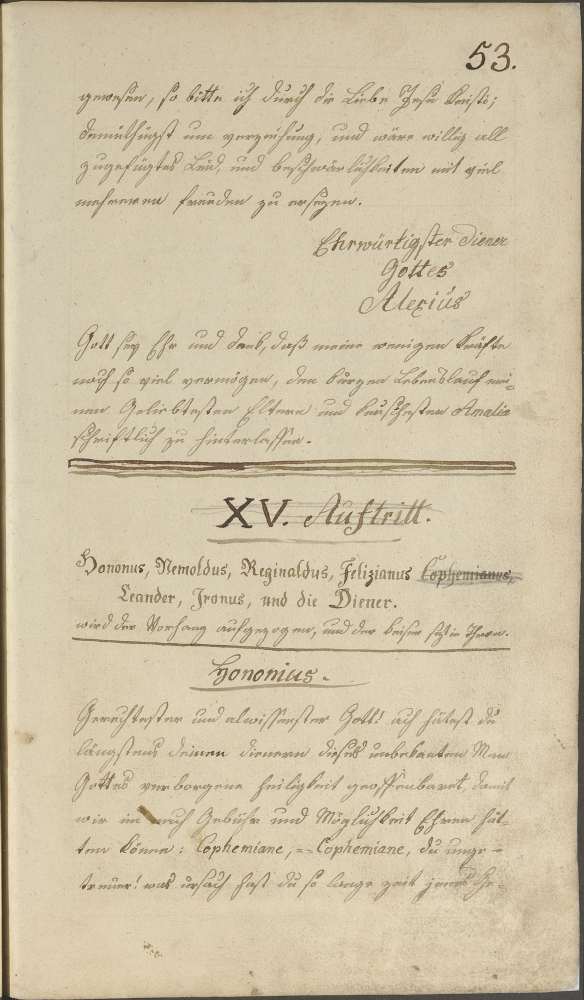 53.
gewesen, so bitte ich durch die Liebe Jesu Kristi;
demüthigst um verzeihung, und wäre willig all
zugefügtes Leid, und beschwärlichkeiten mit viel
mehreren freuden zu ersezen.
Ehrwürtigster Diener
Gottes
Alexius
Gott sey Ehr und dank, daß meine wenigen Kräfte
noch so viel vermögen, den kurzen Lebenslauf mei-
nen Geliebtesten Eltern und keuschesten Amalia
schriftlich zu hinterlassen.
XV. Auftritt.
Hononus, Remoldus, Reginaldus, Felizianus Cophemianus,
Leander, Ironus, und die Diener.
wird der Vorhang aufgezogen, und der keiser sizt im Thron.
Hononius.
Gerechtester und alwissenster Gott! ach hätest du
längstens deinen dienern dieses unbekanten Man
Gottes verborgene heiligkeit geoffenbaret, damit
wir im nach Gebühr und Möglichkeit Ehren hät-
ten könen: Cophemiane, == Cophemiane, du unge-
treuer! was ursach hast du so lange zeit jenes